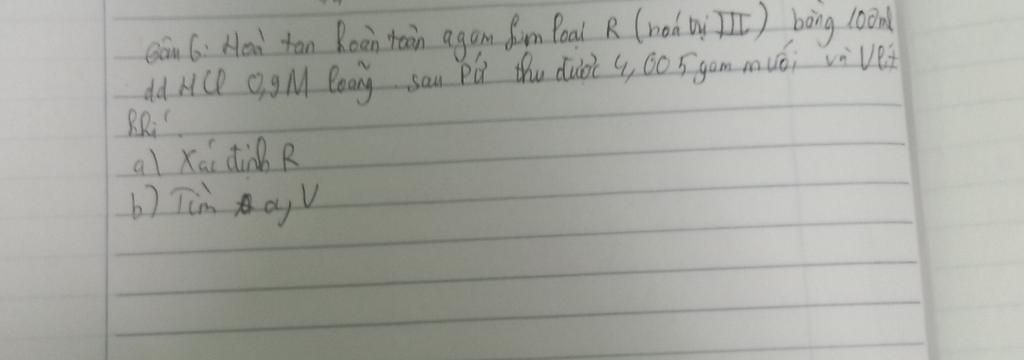 Câu 6: Hoà tan hoàn toàn a gam kim loại R (hoá trị III) bằng 100ml
dd HCl 0,9M loãng sau PƯ thu được 4,005 gam muối và V lít
khí.
a) Xác định R
b) Tìm a, V